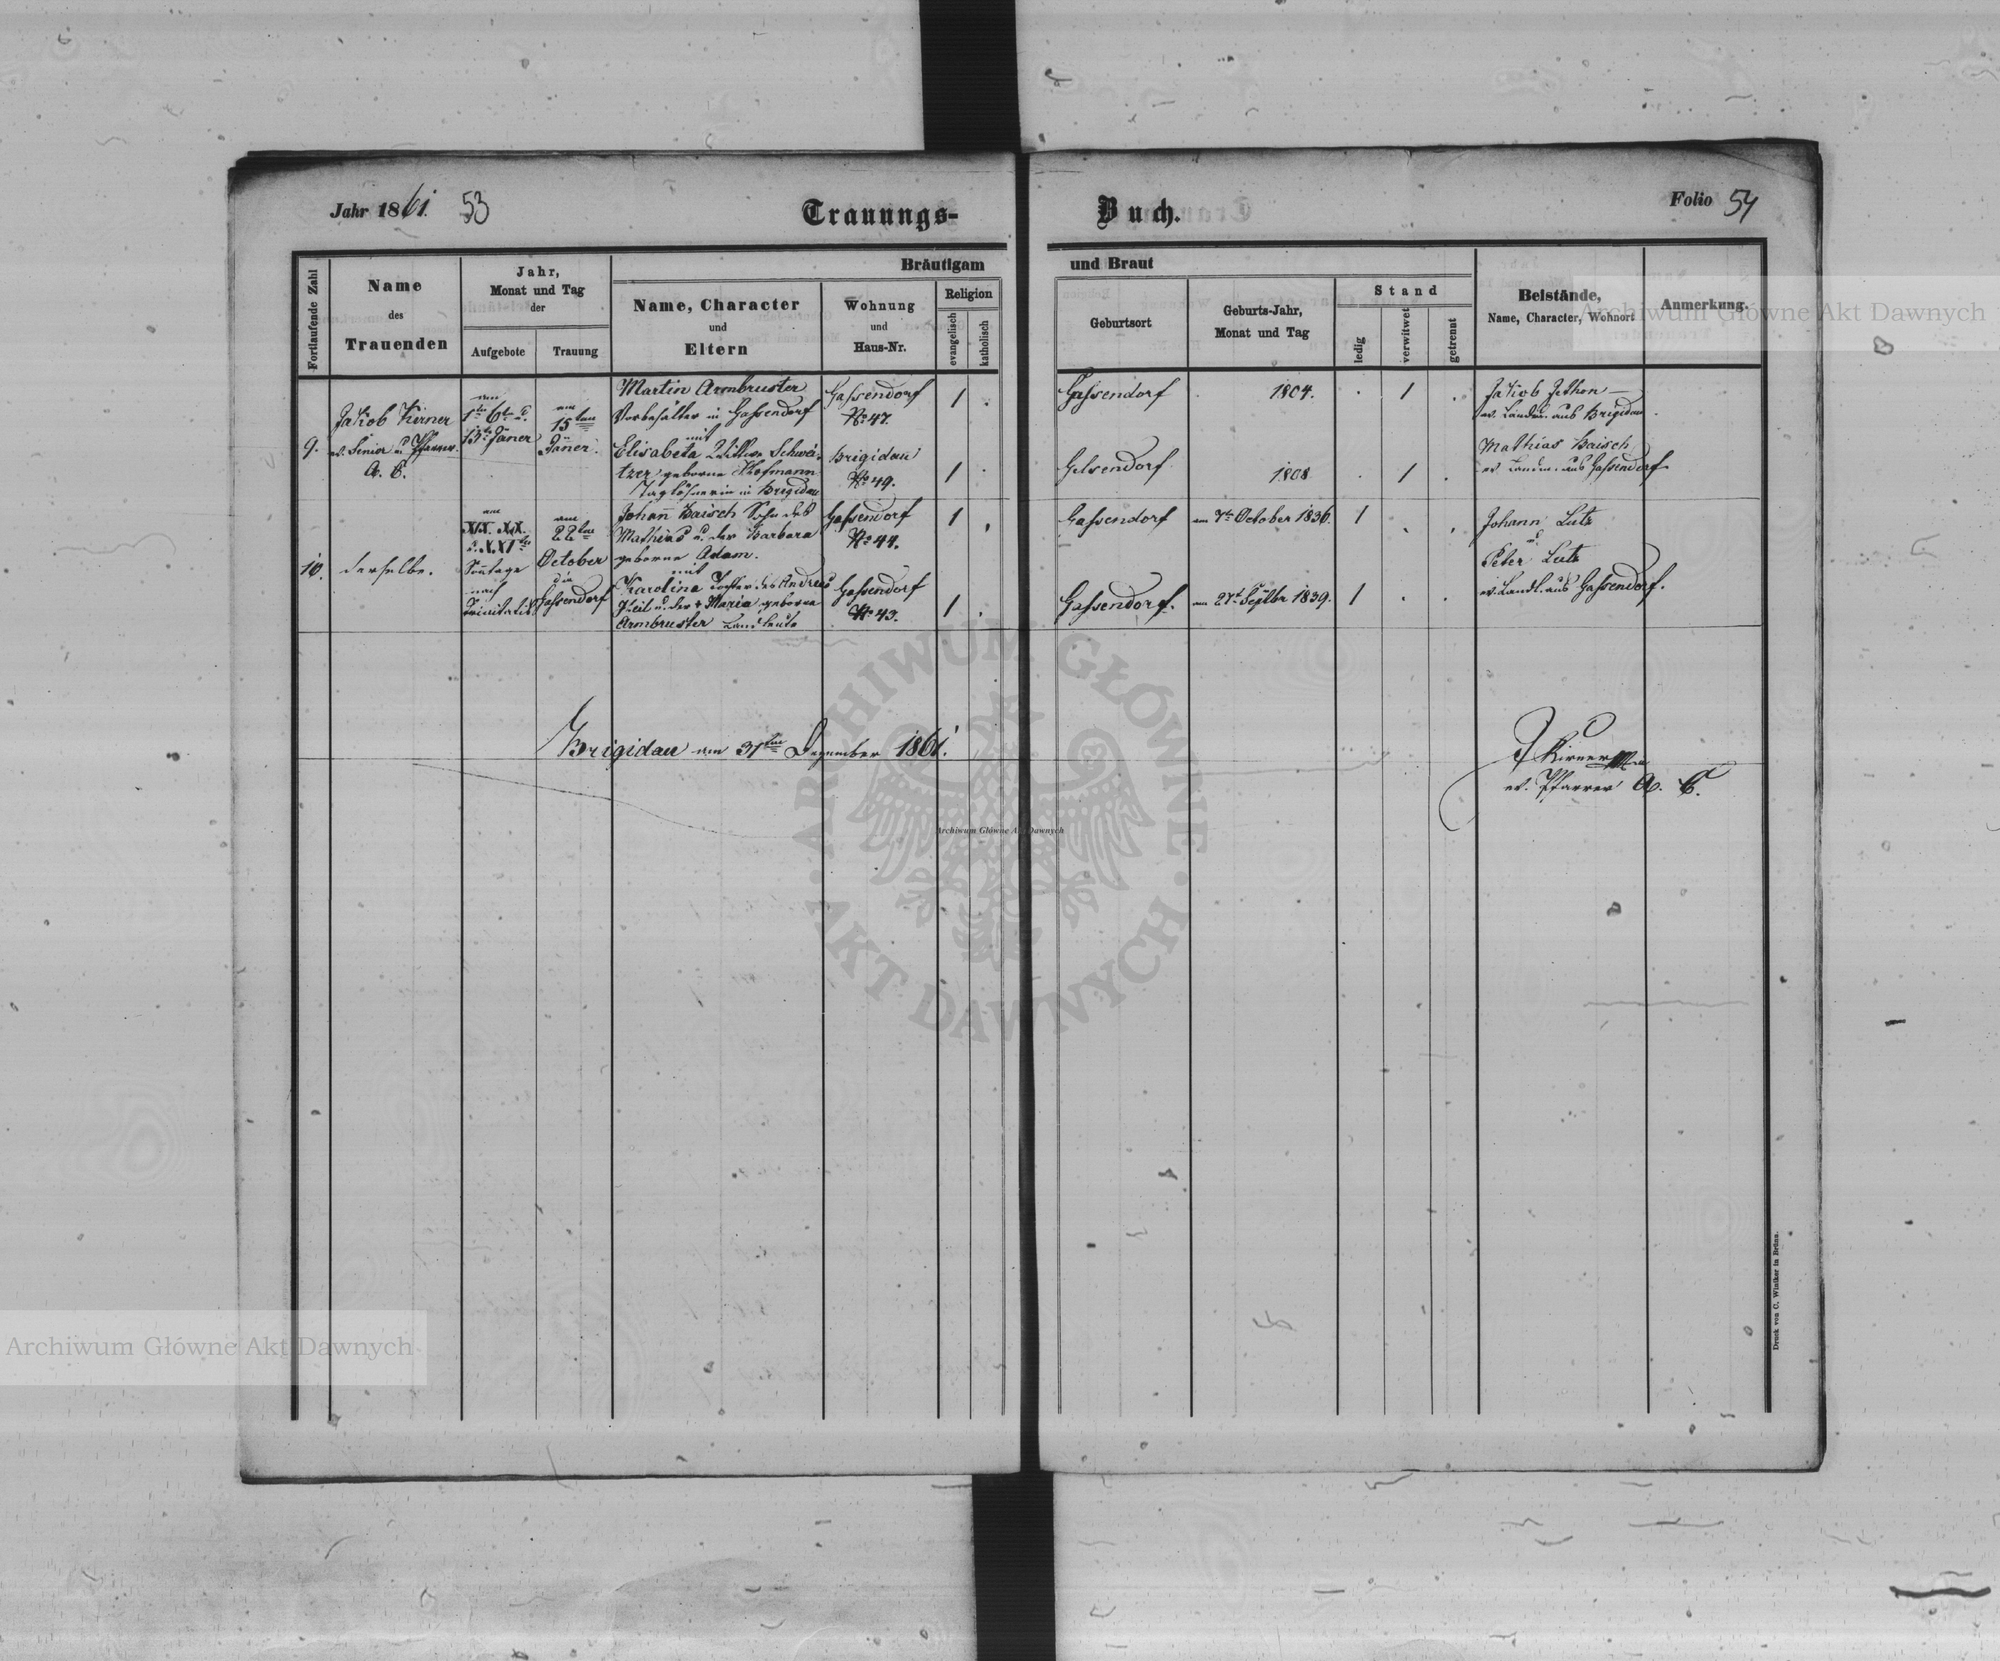 Jahr 1861. 53
Trauungs-
Buch.
Folio 54
Fortlaufende Zahl
Name
des
Trauenden
Jahr,
Monat und Tag
der
Aufgebote
Trauung
Bräutigam
und Braut
Name, Character
und
Eltern
Wohnung
und
Haus-Nr.
Religion
evangelisch
katholisch
Geburtsort
Geburts-Jahr,
Monat und Tag
Stand
ledig
verwitwet
getrennt
Beistände,
Name, Character, Wohnort
Anmerkung.
9.
Jakob Kirner
ev. Senior u. Pfarrer
A. C.
am
1ten 6ten u.
13ten Jäner
am
15ten
Jäner.
Martin Armbruster
Vorbehälter in Gassendorf
mit
Elisabeta Wittwe Schwei-
tzer geborne Hofmann
Taglöhnerin in Brigidau
Gassendorf
No 47.
Brigidau
No 49.
1
1
Gassendorf
Gelsendorf
1804.
1808
1
1
Jakob
ev. Landm. aus Brigidau
Mathias Baisch
ev. Landm. aus Gassendorf
10.
derselbe.
am
XIX. XX.
u. XXIten
Sontage
nach
Trinitatis
am
22ten
October
in
Gassendorf
Johann Baisch Sohn des
Mathias u. der Barbara
geborne Adam.
mit
Karolina Tochter des Andreas
Keil u. der + Maria geborne
Armbruster Landleute
Gassendorf
No 44.
Gassendorf
No 43.
1
1
Gassendorf
Gassendorf.
am 7ten October 1836.
am 27t Septbr 1839.
1
1
Johann Lutz
u.
Peter Lutz
ev. Landl. aus Gassendorf.
Brigidau am 31ten Dezember 1861.
J Kirner
ev. Pfarrer A. C.
Druck von C. Winiker in Brünn.
Archiwum Główne Akt Dawnych
ARCHIWUM GŁÓWNE
AKT DAWNYCH
Archiwum Główne Akt Dawnych
Archiwum Główne Akt Dawnych